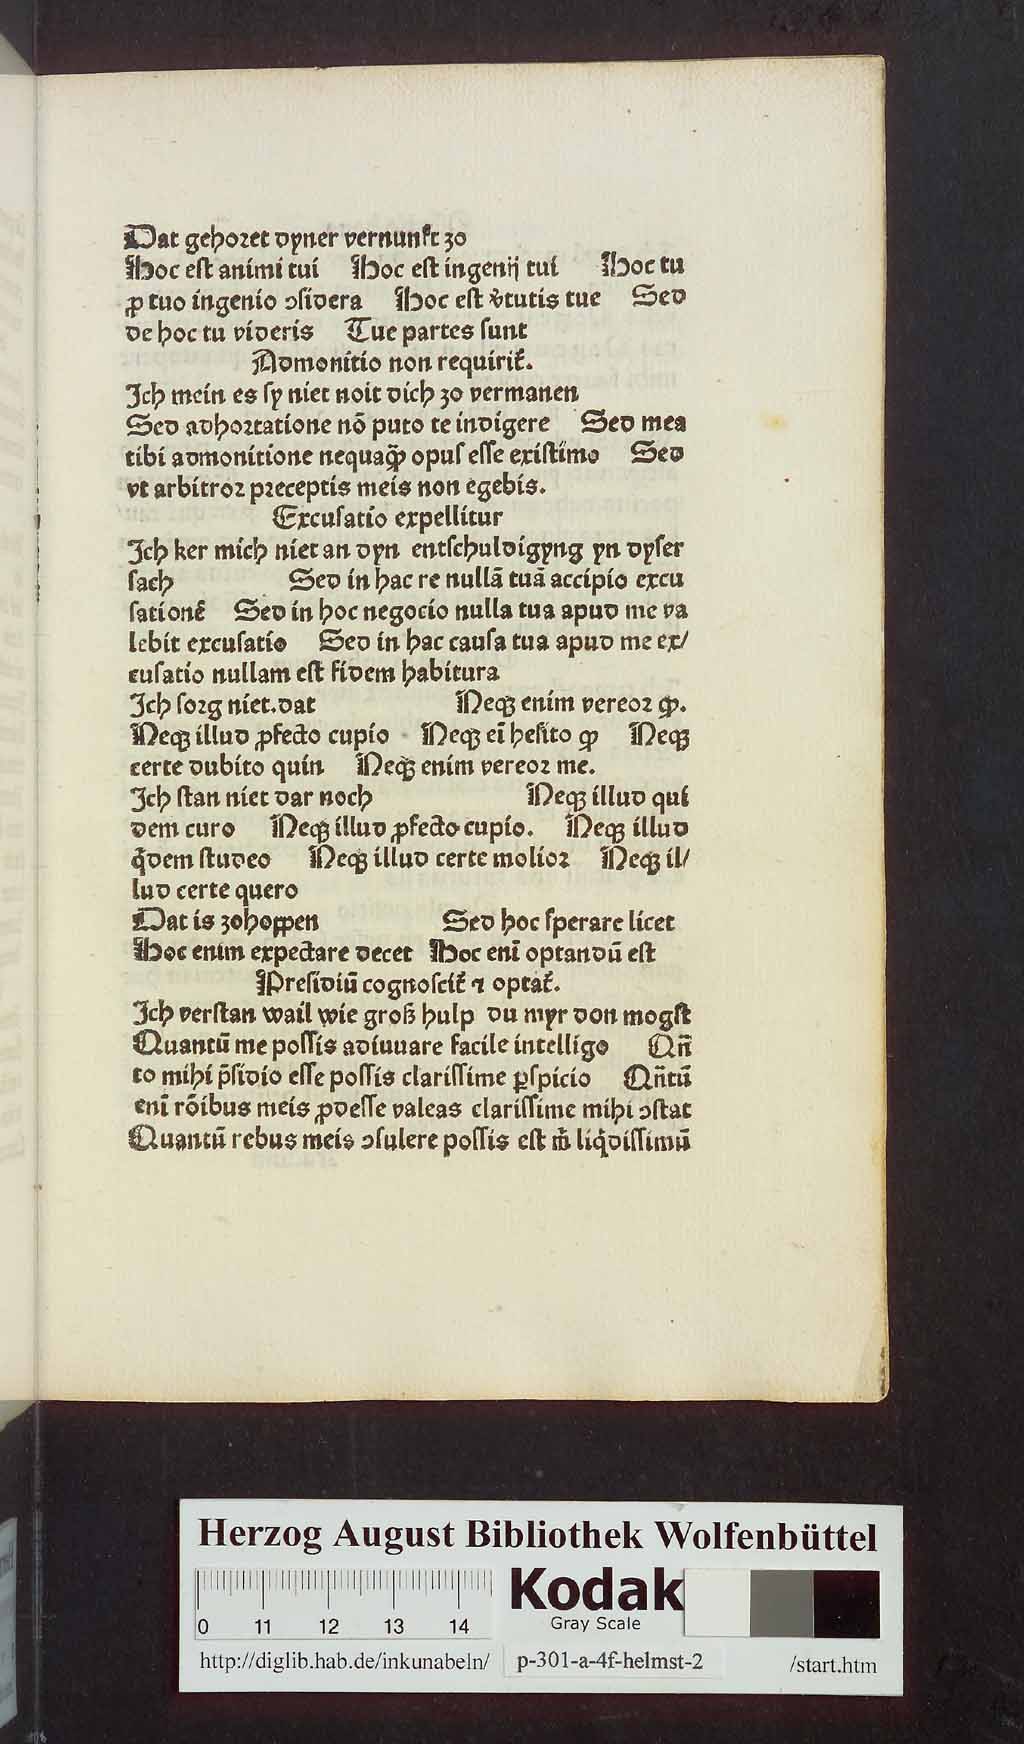 Dat gehoꝛet dyner vernunft zo
Hoc eſt animi tui Hoc eſt ingenij tui Hoc tu
ꝓ tuo ingenio ꝯſidera Hoc eſt v̓tutis tue Sed
de hoc tu videris Tue partes ſunt
Admonitio non requirit᷑.
Ich mein es ſy niet noit dich zo vermanen
Sed adhoꝛtatione nō puto te indigere Sed mea
tibi admonitione nequaꝙ̃ opuſ eſſe existimo Sed
vt arbitroꝛ pꝛeceptis meis non egebis.
Excuſatio expellitur
Ich ker mich niet an dyn entſchuldigyng yn dyſer
ſach Sed in hac re nullā tuā accipio excu
ſationē Sed in hoc negocio nulla tua apud me va
lebit excuſatio Sed in hac cauſa tua apud me ex/
cuſatio nullam eſt fidem habitura
Ich ſoꝛg niet.dat Neqꝫ enim vereoꝛ ꝙ.
Neqꝫ illud ꝓfecto cupio Neqꝫ eī heſito ꝙ Neqꝫ
certe dubito quin Neqꝫ enim vereoꝛ me.
Ich ſtan niet dar noch Neqꝫ illud qui
dem curo Neqꝫ illud ꝓfecto cupio. Neqꝫ illud
q̇dem ſtudeo Neqꝫ illud certe molioꝛ Neqꝫ il/
lud certe quero
Dat is zohoppen Sed hoc ſperare licet
Hoc enim expectare decet Hoc enī optandū eſt
Preſidiū cognoſcit᷑ ⁊ optat᷑.
Ich verſtan wail wie groß hulp du myr don mogſt
Quantū me poſſis adiuuare facile intelligo Qñ
to mihi p̄ſidio eſſe poſſis clariſſime ꝑſpicio Qñtū
enī rōibus meis ꝓdeſſe valeas clariſſime mihi ꝯſtat
Quantū rebus meis ꝯſulere poſſis eſt m̄ liq̇diſſimū
Herzog August Bibliothek Wolfenbüttel
Kodak
Gray Scale
0 11 12 13 14
http://diglib.hab.de/inkunabeln/ p-301-a-4f-helmst-2 /start.htm